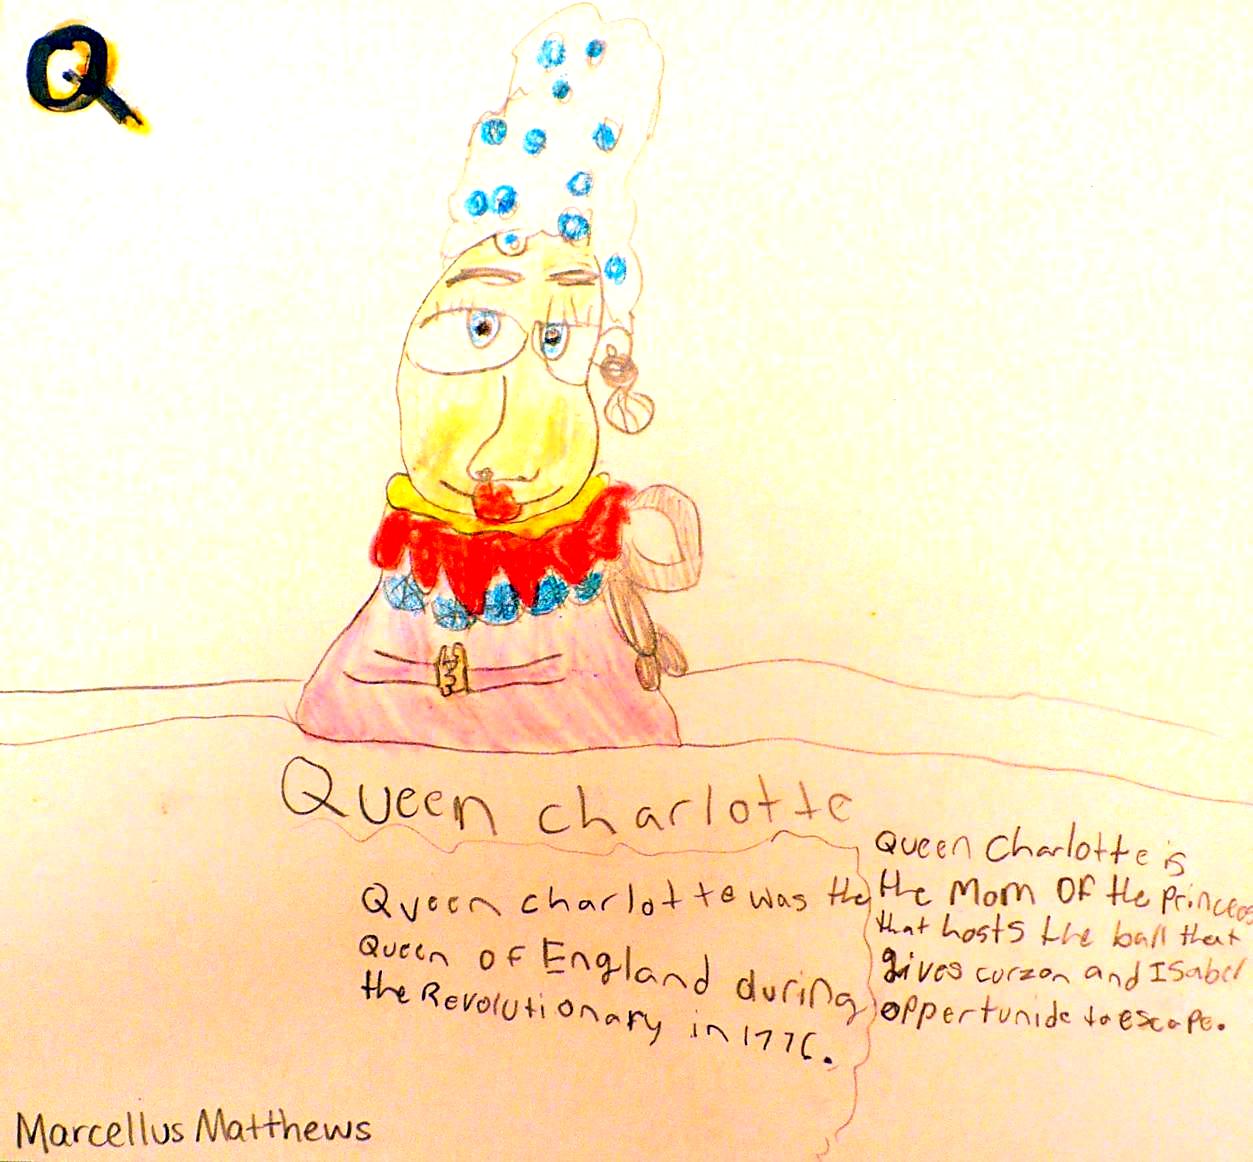 Q
Queen charlotte
Queen charlotte was the
Queen of England during
the Revolutionary in 1776.
Queen Charlotte is
the Mom OF the princess
that hosts the ball that
gives curzon and ISabel
oppertunide to escape.
Marcellus Matthews